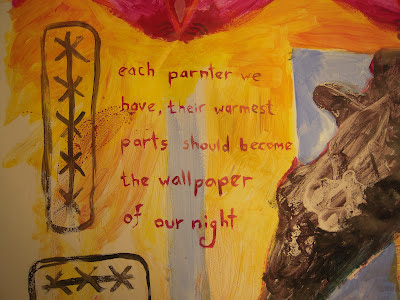 each parnter we
have, their warmest
parts should become
the wallpaper
of our night